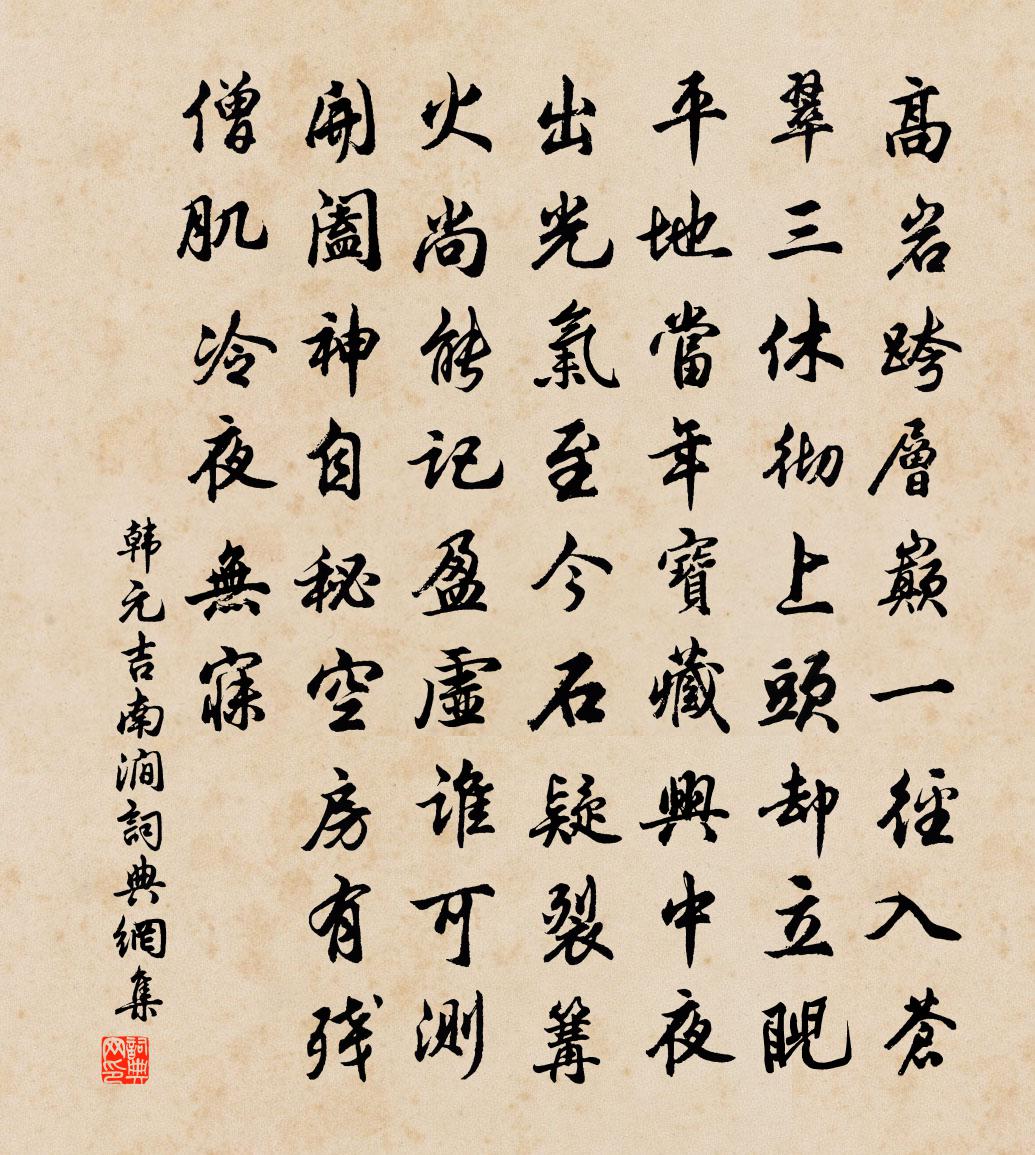 高岩跨層巔一徑入蒼
翠三休彻上頭却立睨
平地當年寶藏興中夜
出光氣至今石疑裂篝
火尚能記盈虛誰可測
開闔神自秘空房有残
僧肌冷夜無寐
韩元吉南澗詞典網集
詞典网印